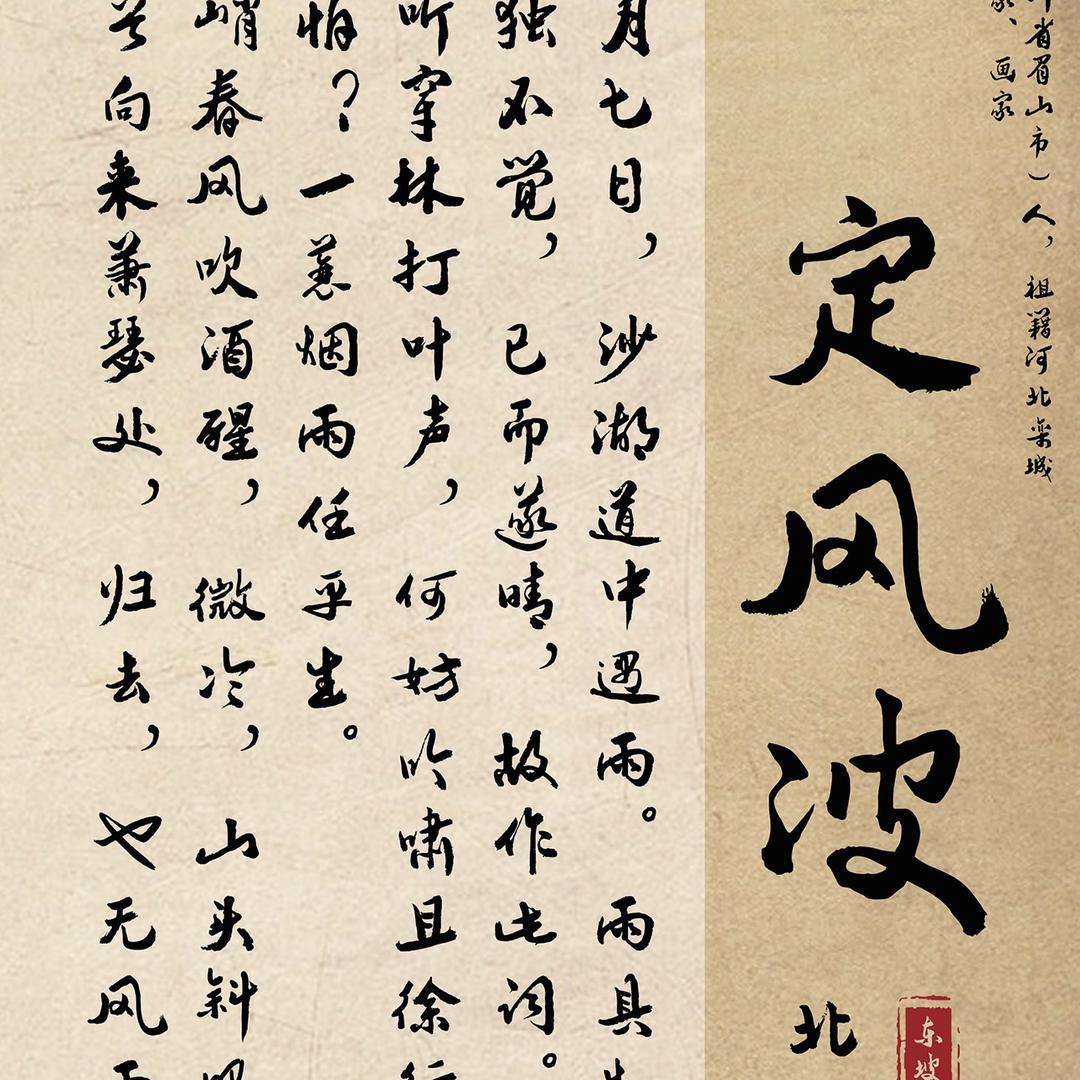 省眉山市）人，祖籍河北栾城
画家
定风波
北
东坡
月七日，沙湖道中遇雨。雨具
独不觉，已而遂晴，故作此词。
听穿林打叶声，何妨吟啸且徐行
怕？一蓑烟雨任平生。
峭春风吹酒醒，微冷，山头斜照
向来萧瑟处，归去，也无风雨